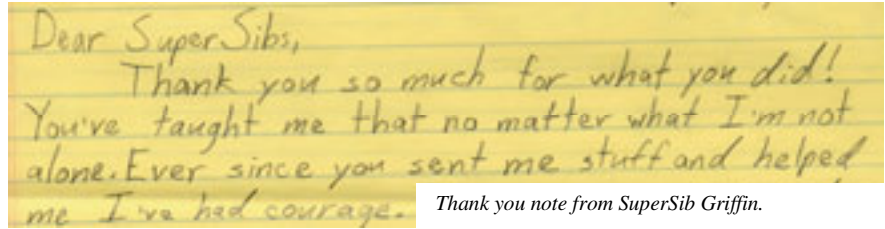 Dear SuperSibs,
Thank you so much for what you did!
You've taught me that no matter what I'm not
alone. Ever since you sent me stuff and helped
me I've had courage.
Thank you note from SuperSib Griffin.